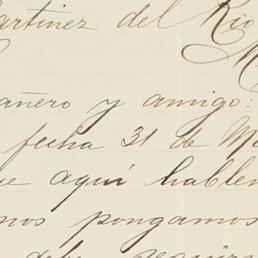 artinez del Rio
M
añero y amigo:
fecha 31 de Ma
ue aquí hablem
nos pongamos
debe seguirs